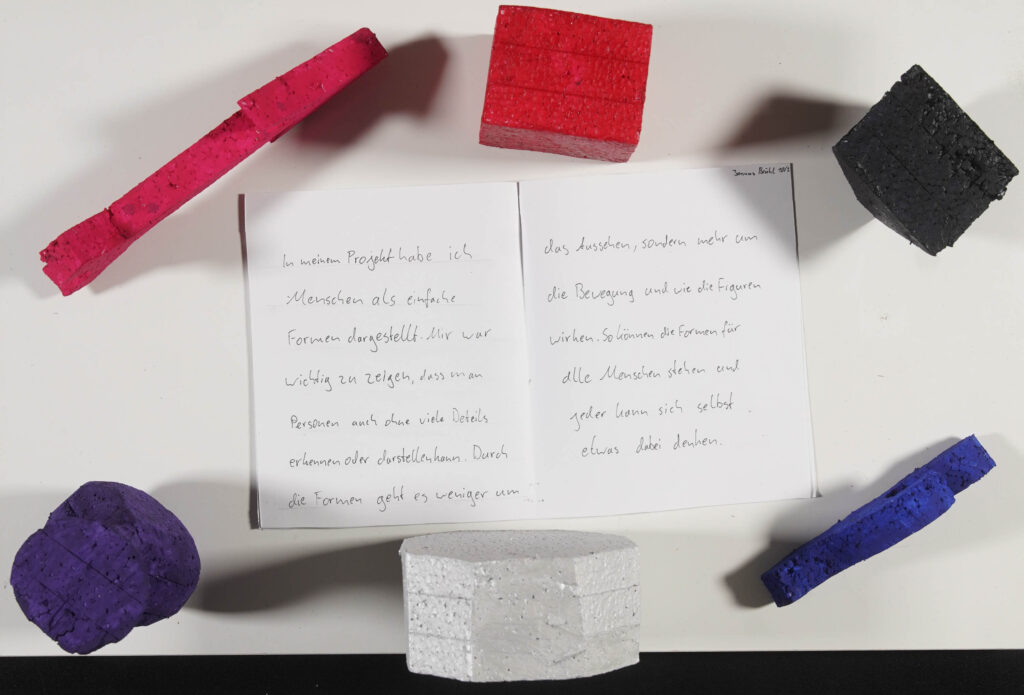 In meinem Projekt habe ich
Menschen als einfache
Formen dargestellt. Mir war
wichtig zu zeigen, dass man
Personen auch ohne viele Details
erkennen oder darstellen kann. Durch
die Formen geht es weniger um
das Aussehen, sondern mehr um
die Bewegung und wie die Figuren
wirken. So können die Formen für
alle Menschen stehen und
jeder kann sich selbst
etwas dabei denken.